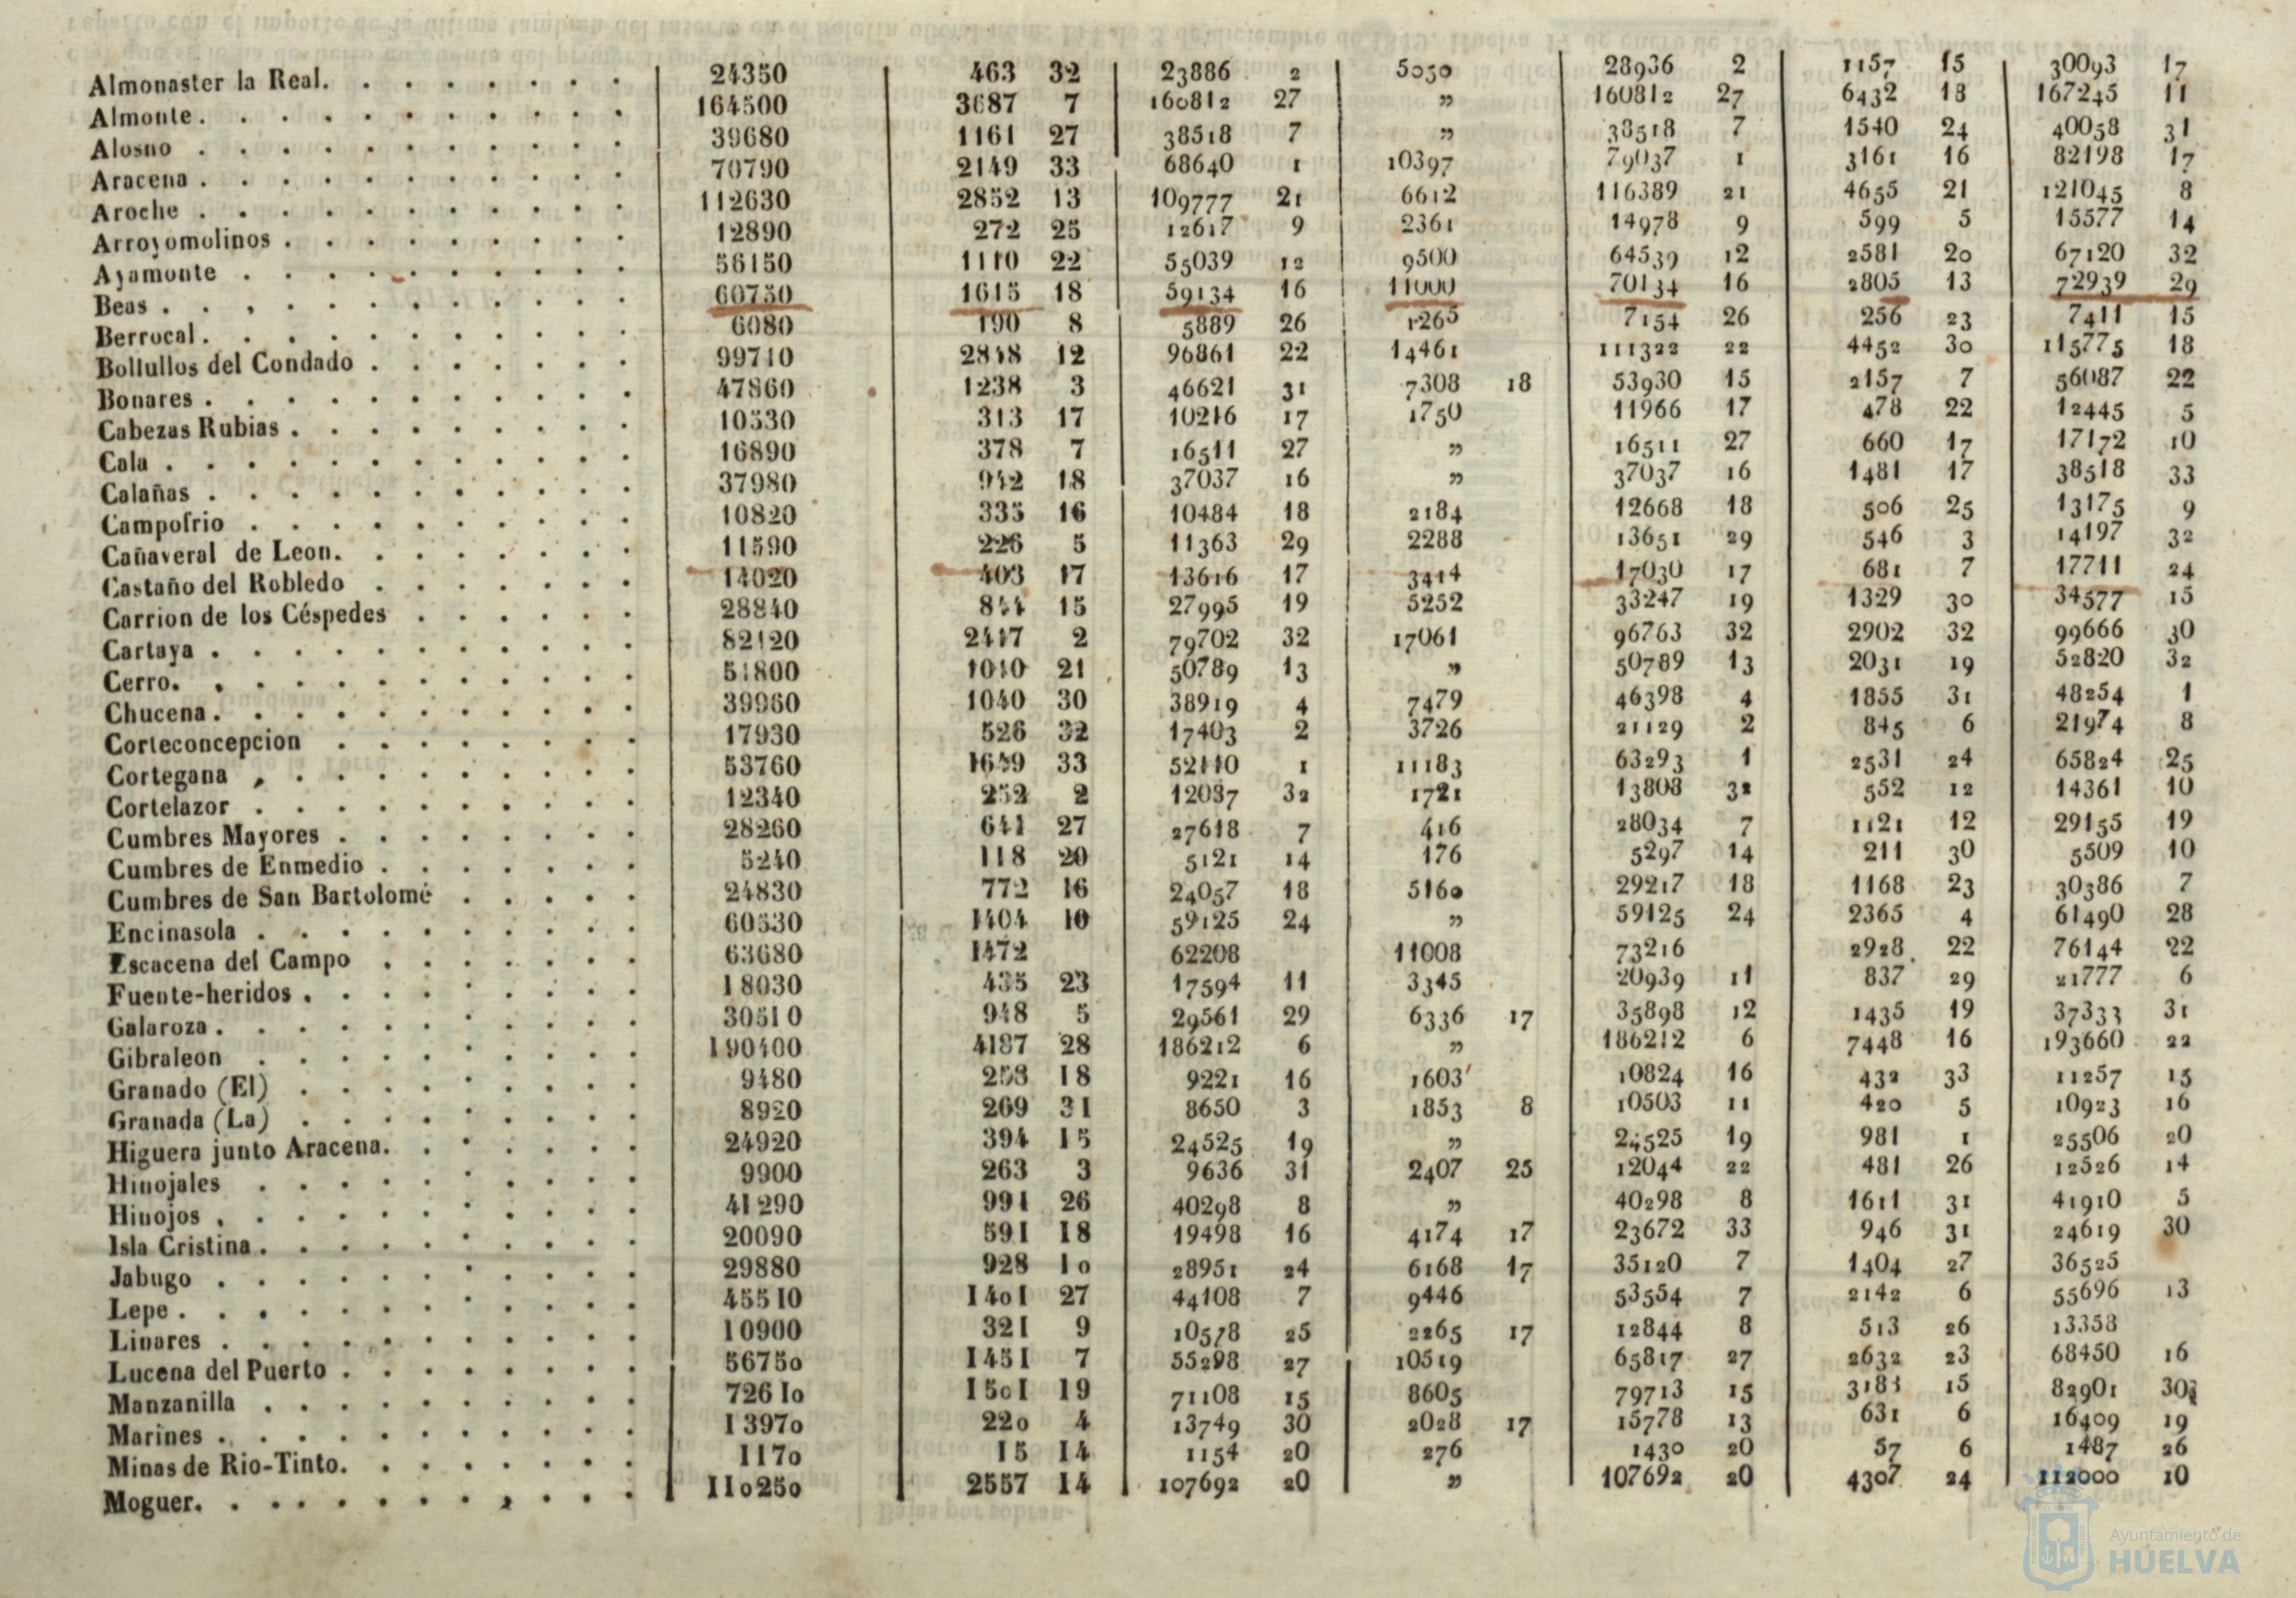 Almonaster la Real. 24350 463 32 23886 2 5050 28936 2 1157 15 30093 17
Almonte. 164500 3687 7 160812 27 „ 160812 27 6432 18 167245 11
Alosno 39680 1161 27 38518 7 „ 38518 7 1540 24 40058 31
Aracena. 70790 2149 33 68640 1 10397 79037 1 3161 16 82198 17
Aroche. 112630 2852 13 109777 21 6612 116389 21 4655 21 121045 8
Arroyomolinos. 12890 272 25 12617 9 2361 14978 9 599 5 15577 14
Ayamonte 56150 1110 22 55039 12 9500 64539 12 2581 20 67120 32
Beas. 60750 1615 18 59134 16 11000 70134 16 2805 13 72939 29
Berrocal. 6080 190 8 5889 26 1265 7154 26 256 23 7411 15
Bollullos del Condado. 99710 2848 12 96861 22 14461 111322 22 4452 30 115775 18
Bonares. 47860 1238 3 46621 31 7308 18 53930 15 2157 7 56087 22
Cabezas Rubias. 10530 313 17 10216 17 1750 11966 17 478 22 12445 5
Cala. 16890 378 7 16511 27 „ 16511 27 660 17 17172 10
Calañas. 37980 942 18 37037 16 „ 37037 16 1481 17 38518 33
Campofrio 10820 335 16 10484 18 2184 12668 18 506 25 13175 9
Cañaveral de Leon. 11590 226 5 11363 29 2288 13651 29 546 3 14197 32
Castaño del Robledo 14020 403 17 13616 17 3414 17030 17 681 7 17711 24
Carrion de los Céspedes 28840 844 15 27995 19 5252 33247 19 1329 30 34577 15
Cartaya. 82120 2417 2 79702 32 17061 96763 32 2902 32 99666 30
Cerro. 51800 1010 21 50789 13 „ 50789 13 2031 19 52820 32
Chucena. 39960 1040 30 38919 4 7479 46398 4 1855 31 48254 1
Corteconcepcion 17930 526 32 17403 2 3726 21129 2 845 6 21974 8
Cortegana 53760 1649 33 52110 1 11183 63293 1 2531 24 65824 25
Cortelazor 12340 252 2 12087 32 1721 13808 32 552 12 14361 10
Cumbres Mayores. 28260 641 27 27618 7 416 28034 7 1121 12 29155 19
Cumbres de Enmedio. 5240 118 20 5121 14 176 5297 14 211 30 5509 10
Cumbres de San Bartolomé 24830 772 16 24057 18 5160 29217 18 1168 23 30386 7
Encinasola. 60530 1404 10 59125 24 „ 59125 24 2365 4 61490 28
Escacena del Campo 63680 1472 62208 11008 73216 2928 22 76144 22
Fuente-heridos. 18030 435 23 17594 11 3345 20939 11 837 29 21777 6
Galaroza. 30510 948 5 29561 29 6336 17 35898 12 1435 19 37333 31
Gibraleon 190400 4187 28 186212 6 „ 186212 6 7448 16 193660 22
Granado (El) 9480 258 18 9221 16 1603 10824 16 432 33 11257 15
Granada (La) 8920 269 31 8650 3 1853 8 10503 11 420 5 10923 16
Higuera junto Aracena. 24920 394 15 24525 19 „ 24525 19 981 1 25506 20
Hinojales 9900 263 3 9636 31 2407 25 12044 22 481 26 12526 14
Hinojos. 41290 991 26 40298 8 „ 40298 8 1611 31 41910 5
Isla Cristina. 20090 591 18 19498 16 4174 17 23672 33 946 31 24619 30
Jabugo 29880 928 10 28951 24 6168 17 35120 7 1404 27 36525
Lepe. 45510 1401 27 44108 7 9446 53554 7 2142 6 55696 13
Linares. 10900 321 9 10578 25 2265 17 12844 8 513 26 13358
Lucena del Puerto. 56750 1451 7 55298 27 10519 65817 27 2632 23 68450 16
Manzanilla 72610 1501 19 71108 15 8605 79713 15 3188 15 82901 30
Marines. 13970 220 4 13749 30 2028 17 15778 13 631 6 16409 19
Minas de Rio-Tinto. 1170 15 14 1154 20 276 1430 20 57 6 1487 26
Moguer. 110250 2557 14 107692 20 „ 107692 20 4307 24 112000 10
Ayuntamiento de
HUELVA